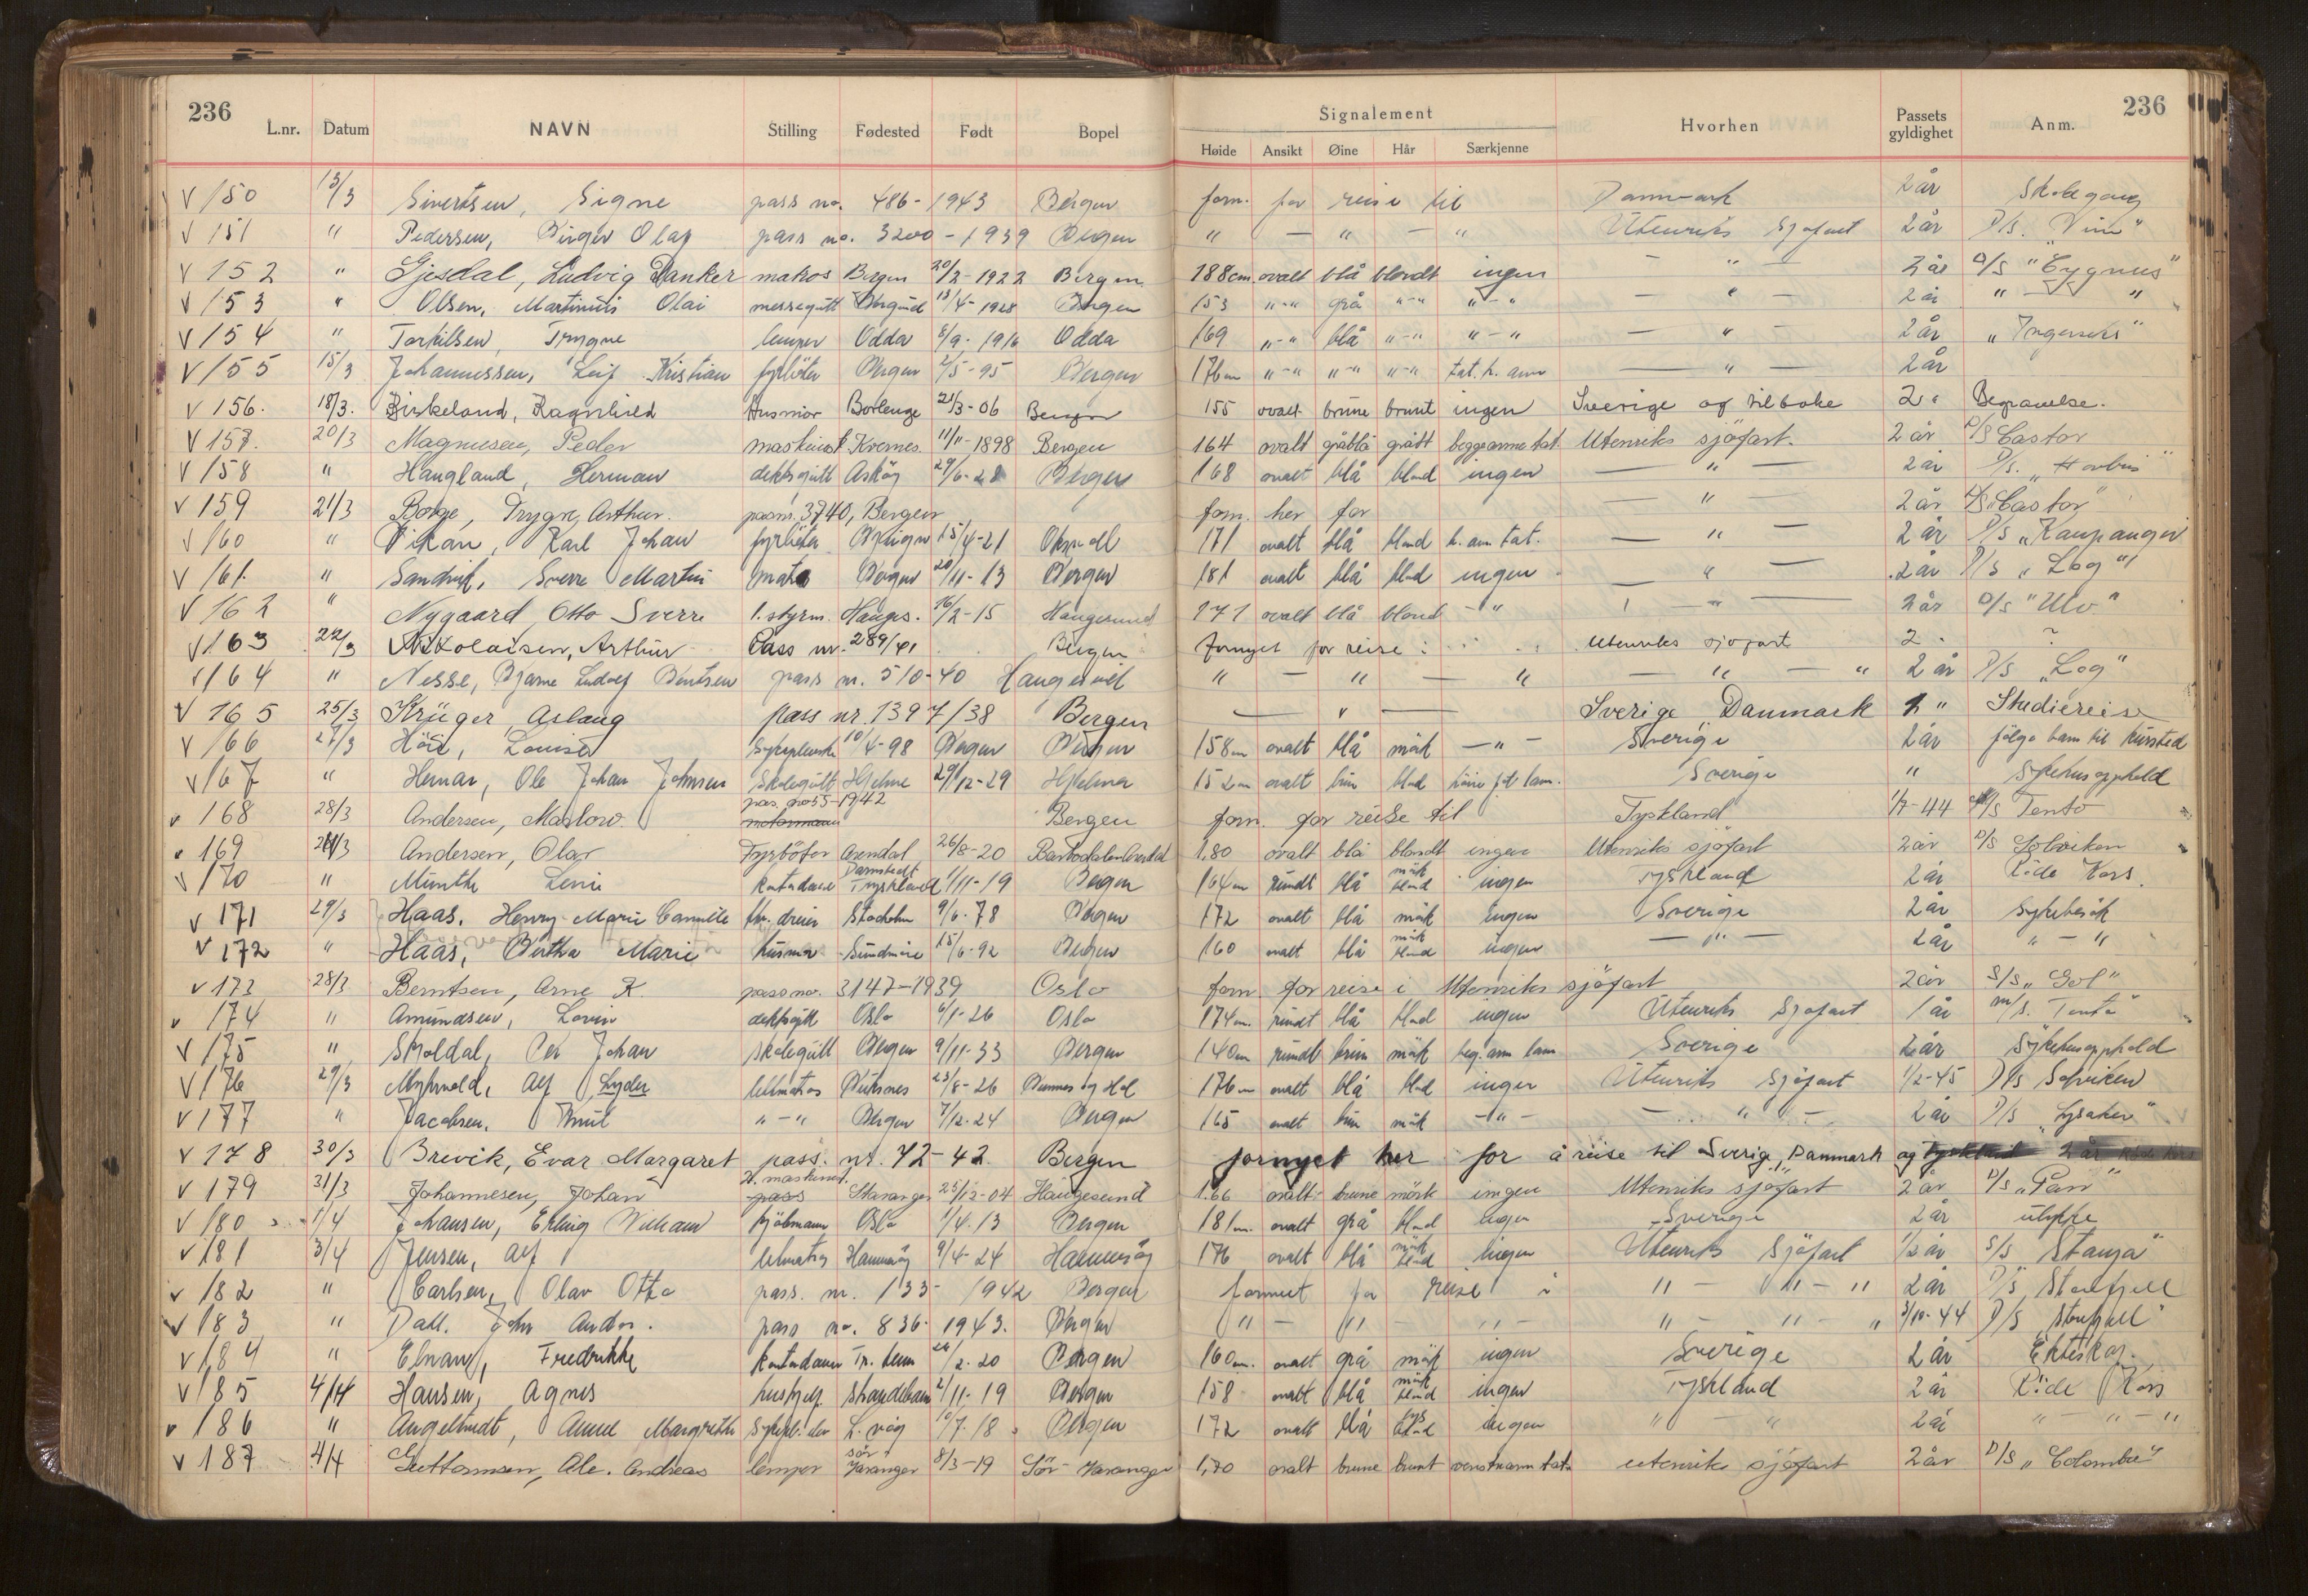 236 236
L.nr. Datum NAVN Stilling Fødested Født Bopel Signalement Hvorhen Passets gyldighet Anm.
Høide Ansikt Øine Hår Særkjenne
V 150 13/3 Sivertsen, Signe pass no. 486 - 1943 Bergen forn. for reise til Danmark 2 år Skolegang
V 151 " Pedersen, Birger Olaf pass no. 3200 - 1939 Bergen " — " — " Utenriks Sjøfart 2 år D/S.
V 152 " Gjesdal, Ludvig Danker matros Bergen 20/2-1922 Bergen 188 cm. ovalt blå blondt ingen — " — 2 år D/S "Cygnus"
V 153 " Olsen, Martinius Olai messegutt 13/4-1928 Bergen 153 "-" grå "-" "-" — " — 2 år " — "
V 154 " Torkilsen, Trygve lemper Odda 8/9-1916 Odda 169 "-" blå "-" "-" — " — 2 år
V 155 15/3 Johannessen, Leif Kristian fyrböter Bergen 2/5-95 Bergen 176 cm "-" "-" "-" tat. h. arm — " — 2 år
V 156. 18/3. Birkeland, Ragnhild Husmor Borlenge 21/3-06 Bergen 155 ovalt brune brunt ingen Sverige og tilbake 2 " Begravelse.
V 157. 20/3 Magnusen, Peder maskinist Kvernes. 11/11-1898 Bergen 164 ovalt gråblå grått begge arme tat. Utenriks sjøfart. 2 år D/S Castor
V 158 " Haugland, Herman dekksgutt Askøy 29/6-28 Bergen 168 ovalt blå blond ingen — " — 2 år D/S.
V 159 21/3 Borge, Trygve Arthur. passnr. 3740, Bergen forn. her for — " — 2 år D/S "Castor"
V 160 " Karl Johan fyrböter Bergen 15/4-21 171 ovalt blå blond h. arm tat. — " — 2 år D/S "Kaupanger
V 161. " Sandvik, Sverre Martin matr. Bergen 20/11-13 Bergen 181 ovalt blå blond ingen — " — 2 år D/S "Log"
V 162 " Nygaard Otto Sverre 1. styrm. Hauges. 16/2-15 Haugesund 171 ovalt blå blond - " — " — 2 år D/S "Ulv"
V 163 22/3 Nikolaisen, Arthur Pass nr. 289/41 Bergen fornyet for reise i Utenriks sjøfart 2 " ?
V 164 " Nesse, Bjarne Ludolf Berntsen pass nr. 510-40 Haugesund " — " — " — " — " 2 år D/S "Log"
V 165 25/3 Krüger, Aslaug pass nr. 1397/38 Bergen — " — Sverige, Danmark 2 " Studiereise
V 166 27/3 Louise 10/4-98 Bergen Bergen 158 cm ovalt blå mörk - " - Sverige 2 år følge barn til kursted
V 167 " Ole Johan Johnsen Skolegutt Hjelme 29/12-29 Hjelme 152 cm ovalt brun blond Sverige " Sykehusopphold
V 168 28/3 Andersen, pas. no 55-1942 Bergen forn. for reise til Tyskland 1/7-44 M/S Tento
V 169 28/3 Andersen, Olav Fyrböter Arendal 26/8-20 1,80 ovalt blå blondt ingen Utenriks sjøfart 2 år D/S Solviken
V 170 " Munthe Darmstadt Tyskland 1/11-19 Bergen 164 cm rundt blå mörk blond ingen Tyskland 2 år Röde Kors.
V 171 29/3 Haas, Henry Marie 9/6-78 Bergen 172 ovalt blå mörk ingen Sverige 2 år Sykebesök
V 172 " Haas, Bertha Marie husmor Sundmöre 15/6-92 Bergen 160 ovalt blå mörk blond ingen — " — 2 år " — "
V 173 28/3 Berntsen, Arne K. pass no. 3147-1939 Oslo forn for reise i Utenriks sjøfart 2 år S/S "Gol"
V 174 " Amundsen, dekksgutt Oslo 6/1-26 Oslo 174 cm. rundt blå blond ingen Utenriks Sjøfart 1 år M/S. Tento
V 175 " Skoldal, Per Johan skolegutt Bergen 9/11-33 Bergen 140 cm rundt brun mörk beg. arm lam Sverige 2 år Sykehusopphold
V 176 29/3 Myhrvold, Alf Lyder lettmatros 23/8-26 176 cm ovalt blå blond ingen Utenriks Sjøfart 1/2-45 D/S Solviken
V 177 " Jacobsen, Knut "-" Bergen 7/12-24 Bergen 165 ovalt brun mörk - " - — " — 2 år D/S "Lysaker"
V 178 30/3 Brevik, Evar Margaret pass. nr. 72-42 Bergen fornyet her for å reise til Sverig, Danmark og
V 179 31/3 Johannesen, Johan 2. maskinist. Stavanger 25/12-04 Haugesund 1.66 ovalt brune mörk ingen Utenriks sjøfart 2 år D/S "Pan"
V 180 1/4 Johansen, Erling William Oslo 1/4.13 Bergen 181 cm. ovalt grå blond ingen Sverige 2 år ulykke
V 181 3/4 Jensen, Alf lettmatros 9/4-24 176 ovalt blå mörk blond ingen Utenriks Sjøfart 1/2 år S/S
V 182 " Carlsen, Olav Otto pass. nr. 133 - 1942 Bergen fornyet for reise i " — " — " 2 år D/S
V 183 " Dall. John Andor. pass no. 836 - 1943. Bergen " — " — " — " — " — " 3/10-44 D/S
V 184 " Fredrikke kontordame Tr. heim 2.20 Bergen 160 cm. ovalt grå mörk ingen Sverige 2 år Ekteskap.
V 185 4/4 Hansen, Agnes hushjelp 2/11-19 Bergen 158 ovalt blå mörk blond ingen Tyskland 2 år Röde Kors
V 186 " Angeltveit, Anne Margrethe L. våg 10/7.18 Bergen 172 ovalt blå lys blond ingen " — " 2 år " — " — "
V 187 4/4 Guttormsen, Ole. Andreas lemper Sör Varanger 8/3-19 Sör Varanger 1,70 ovalt brune brunt venstre arm tat. utenriks sjøfart 2 år D/S "Colombia"